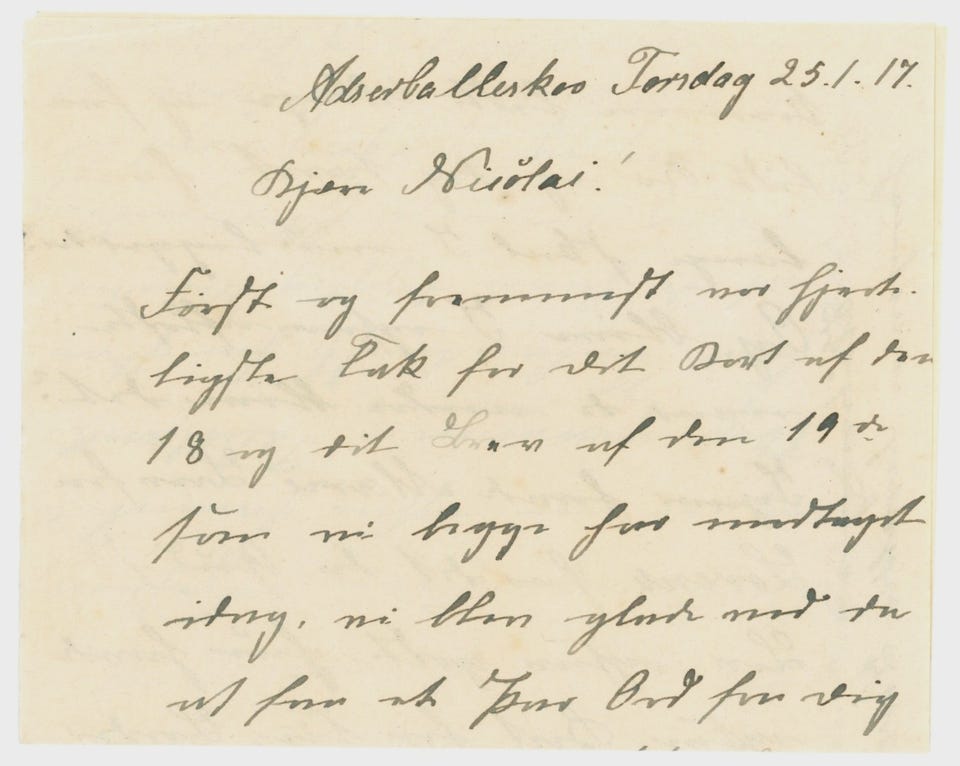 Adserballeskov Torsdag 25.1.17.
Kjære Nicolai!
Først og fremmest vor hjert-
ligste Tak for dit Kort af den
18 og dit Brev af den 19de
som vi begge har modtaget
idag. vi blev glade ved du
at faa et Par Ord fra dig